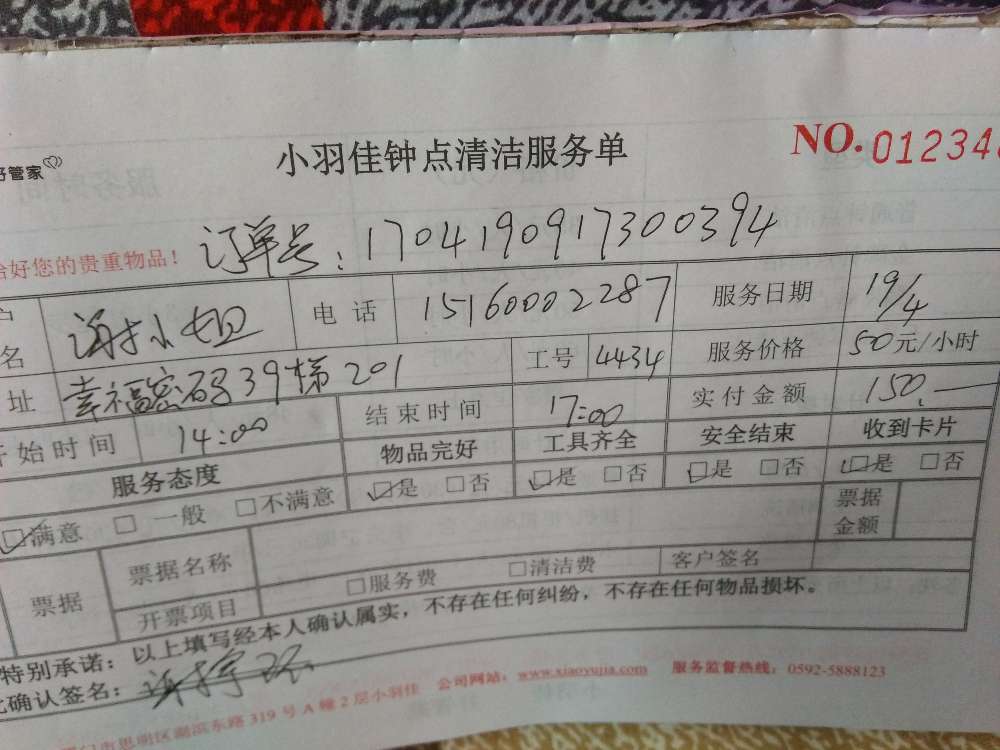 好管家
小羽佳钟点清洁服务单
NO. 012346
订单号：170419091730​0394
好您的贵重物品！
名 谢小姐 电话 15160002287 服务日期 19/4
址 幸福密码39梯201 工号 4434 服务价格 50元/小时
开始时间 14:00 结束时间 17:00 实付金额 150.
服务态度 物品完好 工具齐全 安全结束 收到卡片
☑满意 □一般 □不满意 ☑是 □否 ☑是 □否 ☑是 □否 ☑是 □否
票据 票据名称 票据金额
开票项目 □服务费 □清洁费 客户签名
特别承诺：以上填写经本人确认属实，不存在任何纠纷，不存在任何物品损坏。
此确认签名：
门市思明区湖滨东路319号A幢2层小羽佳 公司网站：www.xiaoyujia.com 服务监督热线：0592-5888123